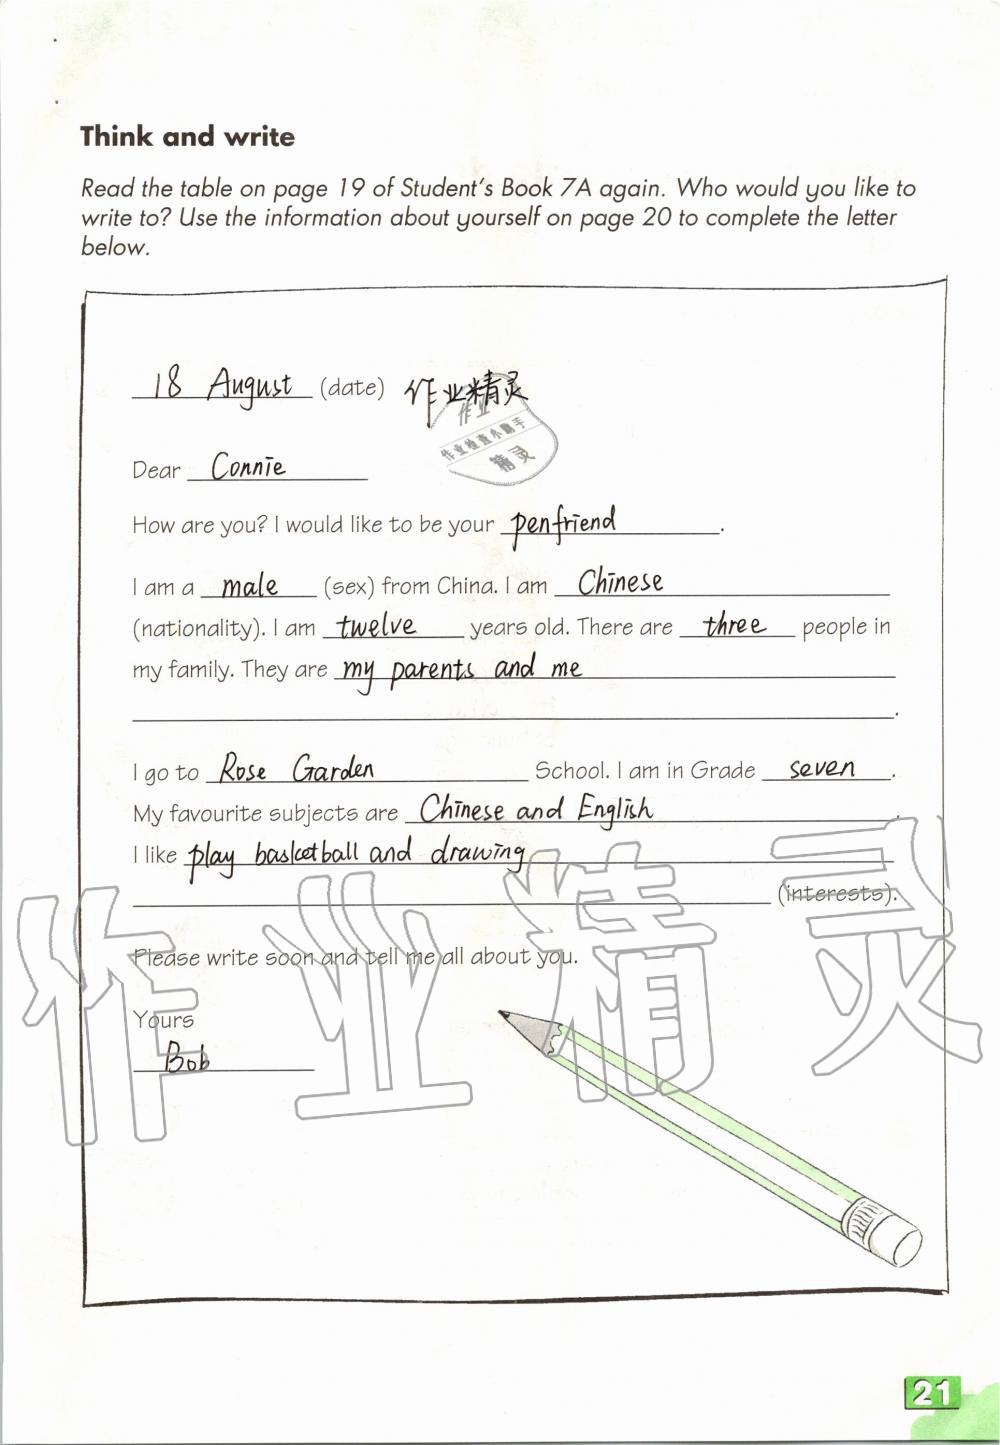 Think and write
Read the table on page 19 of Student's Book 7A again. Who would you like to
write to? Use the information about yourself on page 20 to complete the letter
below.
18 August (date) 作业精灵
作业
作业检查小助手
精灵
Dear Connie
How are you? I would like to be your penfriend.
I am a male (sex) from China. I am Chinese
(nationality). I am twelve years old. There are three people in
my family. They are my parents and me
.
I go to Rose Garden School. I am in Grade seven.
My favourite subjects are Chinese and English.
I like play basketball and drawing
(interests).
Please write soon and tell me all about you.
Yours
Bob
作业精灵
21